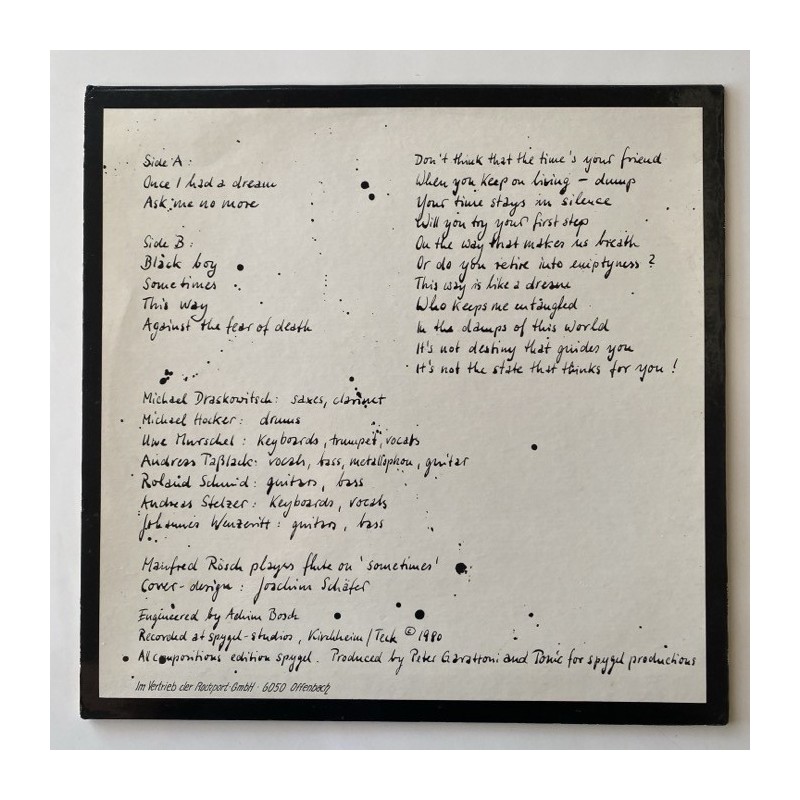 Side A:
Once I had a dream
Ask me no more
Side B:
Black boy
Sometimes
This way
Against the fear of death
Don't think that the time's your friend
When you keep on living – dump
Your time stays in silence
Will you try your first step
On the way that makes us breath
Or do you retire into emptyness?
This way is like a dream
Who keeps me entangled
In the damps of this world
It's not destiny that guides you
It's not the state that thinks for you!
Michael Draskowitsch: saxes, clarinet
Michael Hocker: drums
Uwe Murschel: Keyboards, trumpet, vocals
Andreas Taßlack: vocals, bass, metallophon, guitar
Roland Schmid: guitars, bass
Andreas Stelzer: Keyboards, vocals
Johannes Wenzeritt: guitars, bass
Manfred Rösch playes flute on 'sometimes'
Cover-design: Joachim Schäfer
Engineered by Achim Bosch
Recorded at spygel-studios, Kirchheim/Teck © 1980
All compositions edition spygel. Produced by Peter Garattoni and Tonic for spygel productions
Im Vertrieb der Rockport-GmbH · 6050 Offenbach